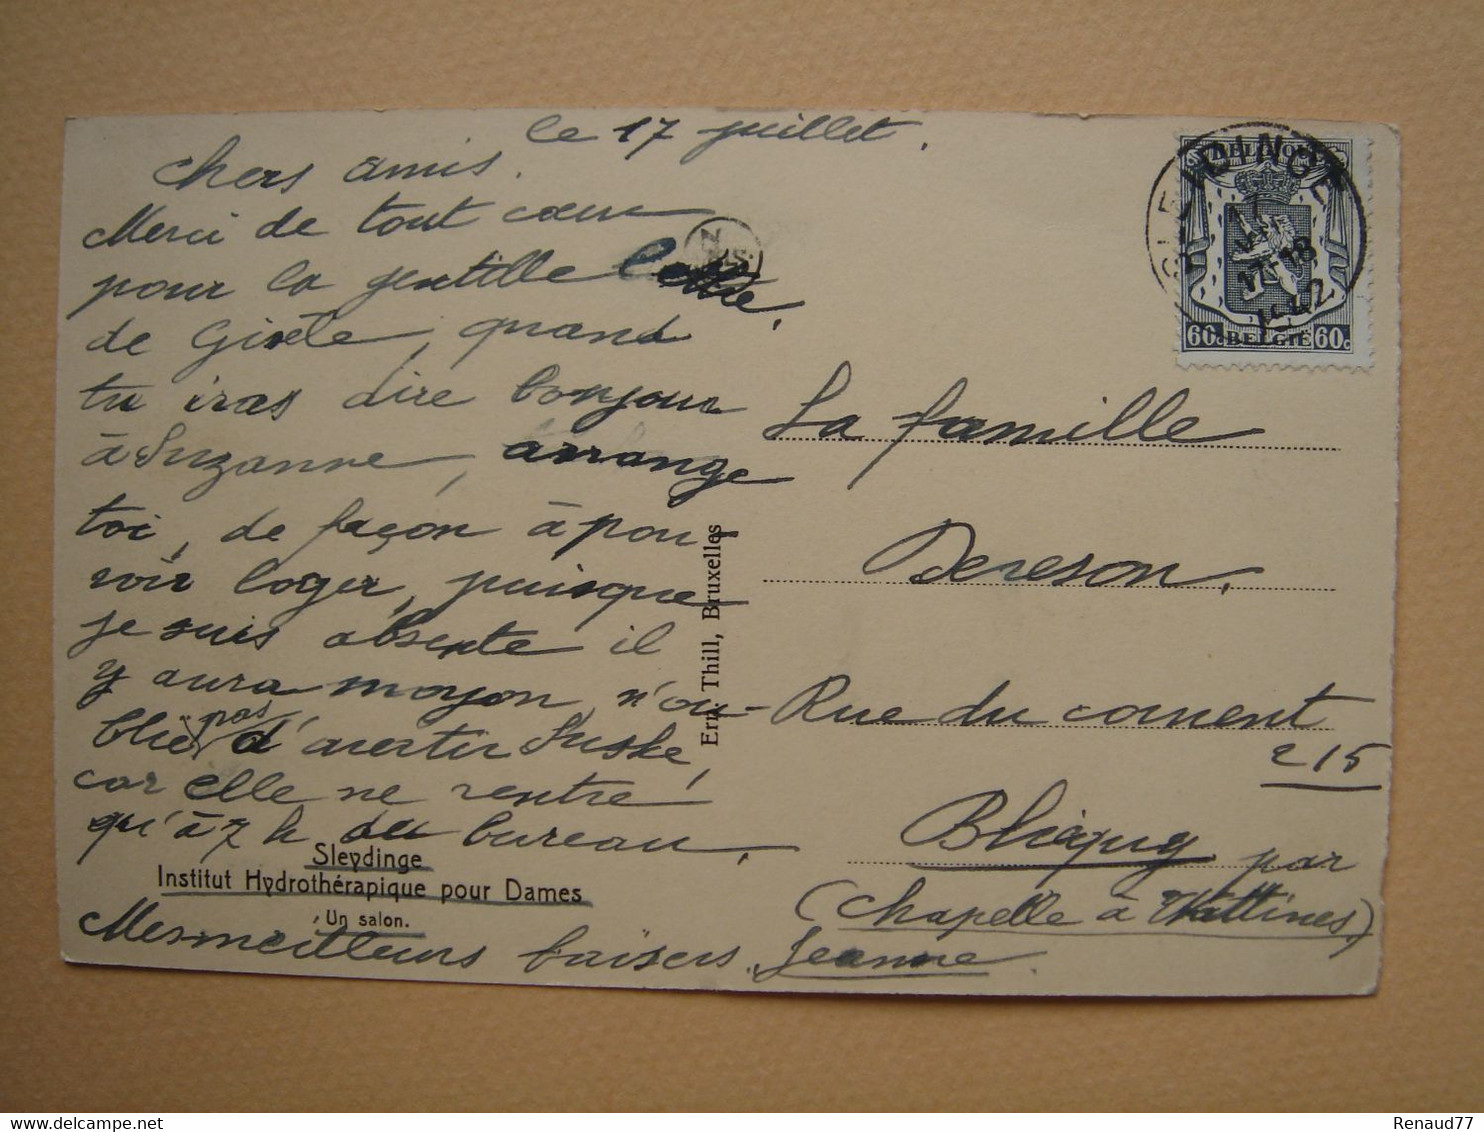 le 17 juillet.
Chers amis.
Merci de tout cœur
pour la gentille lettre
de Gisèle, quand
tu iras dire bonjour
à Suzanne, arrange
toi, de façon à pou-
voir loger, puisque
je suis absente il
y aura moyon, n'ou-
blie pas d'avertir Suske,
car elle ne rentre
qu'à 7 h du bureau.
Sleydinge
Institut Hydrothérapique pour Dames
Un salon.
Mes meilleurs baisers. Jeanne.
Ern. Thill, Bruxelles
SLEIDINGE
17
17-18
1942
BELGIQUE
60c BELGIË 60c
La famille
Dereson.
Rue du couvent
215
Blicquy par
(Chapelle à Wattines)
Renaud77
delcampe.net